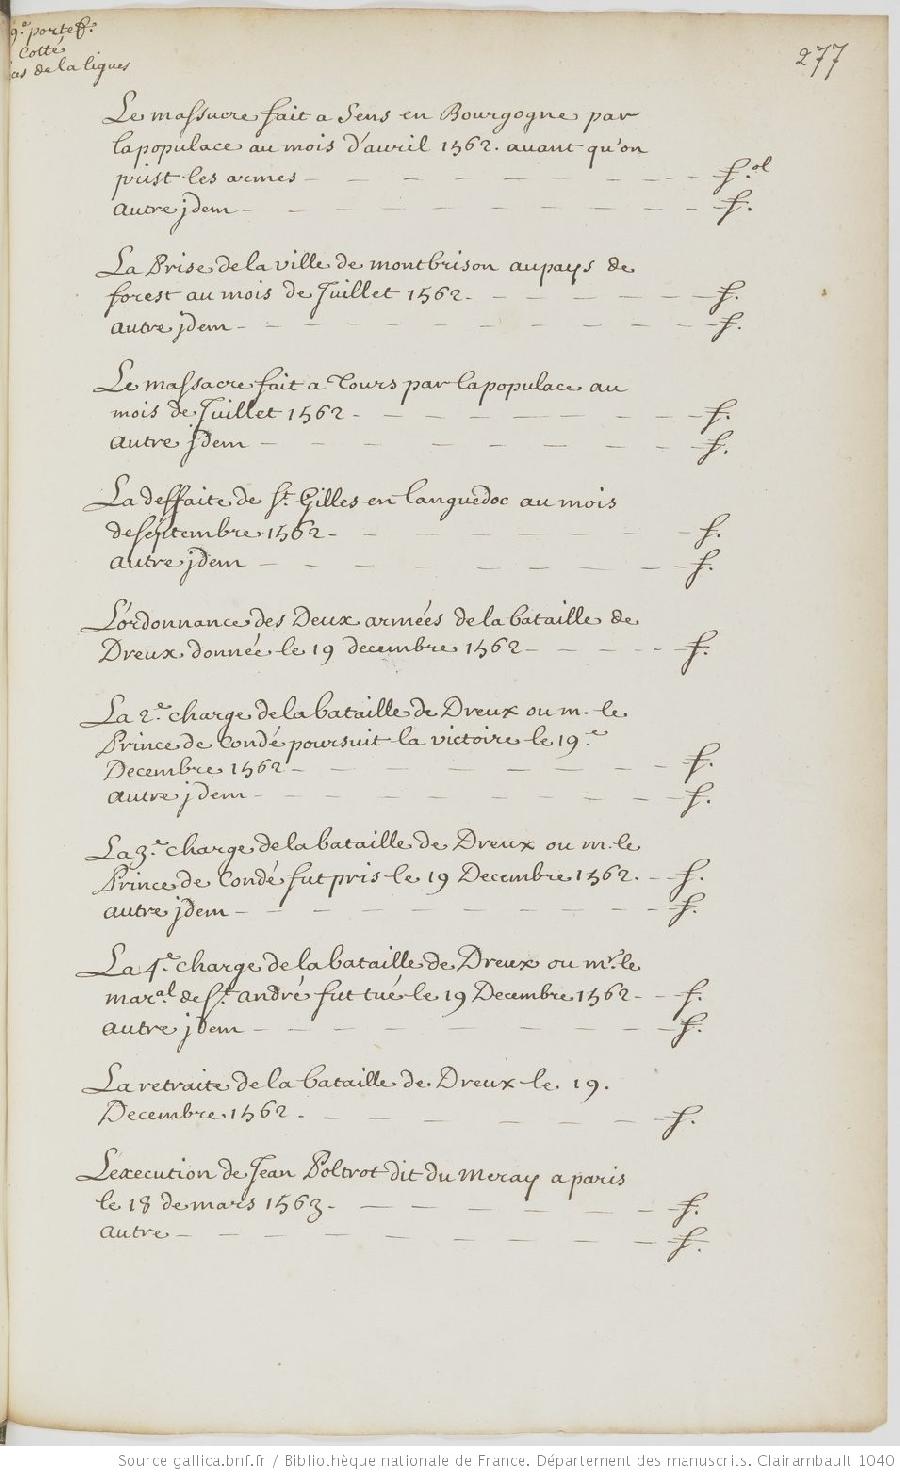 9.e portef.e
Cotté
as de la ligue
277
Le massacre fait a Sens en Bourgogne par
la populace au mois d'avril 1562. avant qu'on
prist les armes - f.ol
autre jdem - f.
La Prise de la ville de montbrison au pays de
forest au mois de Juillet 1562 - f.
autre jdem - f.
Le massacre fait a Tours par la populace au
mois de Juillet 1562 - f.
autre jdem - f.
La deffaite de St. Gilles en languedoc au mois
de septembre 1562 - f.
autre jdem - f.
L'ordonnance des Deux armées de la bataille de
Dreux donnée le 19 decembre 1562 - f.
La 2.e charge de la bataille de Dreux ou m. le
Prince de Condé poursuit la victoire le 19.e
Decembre 1562 - f.
autre jdem - f.
La 3.e charge de la bataille de Dreux ou m. le
Prince de Condé fut pris le 19 Decembre 1562. - f.
autre jdem - f.
La 4.e charge de la bataille de Dreux ou mr. le
mar.al de St. andré fut tué le 19 Decembre 1562 - f.
autre jdem - f.
La retraite de la bataille de Dreux le 19.
Decembre 1562. - f.
L'execution de Jean Poltrot dit du Meray a paris
le 18 de mars 1563 - f.
autre - f.
Source gallica.bnf.fr / Bibliothèque nationale de France. Département des manuscrits. Clairambault 1040